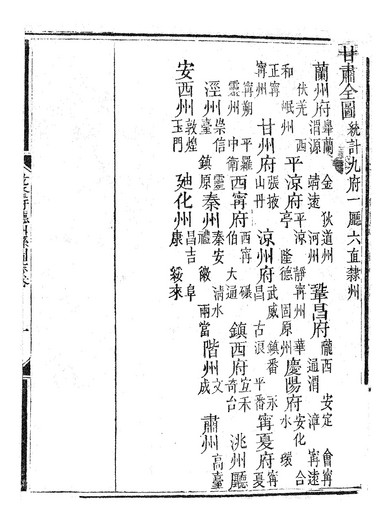 甘肅全圖 統計九府一廳六直隸州
蘭州府 皋蘭 金 狄道州 渭源 靖遠 河州 鞏昌府 隴西 安定 會寧 通渭 漳 寧遠
伏羌 西和 岷州 平涼府 平涼 靜寧州 華亭 隆德 固原州 慶陽府 安化 合水 環
正寧 寧州 甘州府 張掖 山丹 涼州府 武威 鎮番 永昌 古浪 平番 寧夏府 寧
寧朔 平羅 靈州 中衛 西寧府 西寧 碾伯 大通 鎮西府 宜禾 奇台 洮州廳
涇州 崇信 臺 鎮原 秦州 秦安 清水 禮 徽 兩當 階州 文 成 肅州 高臺
安西州 敦煌 玉門 廸化州 昌吉 阜康 綏來